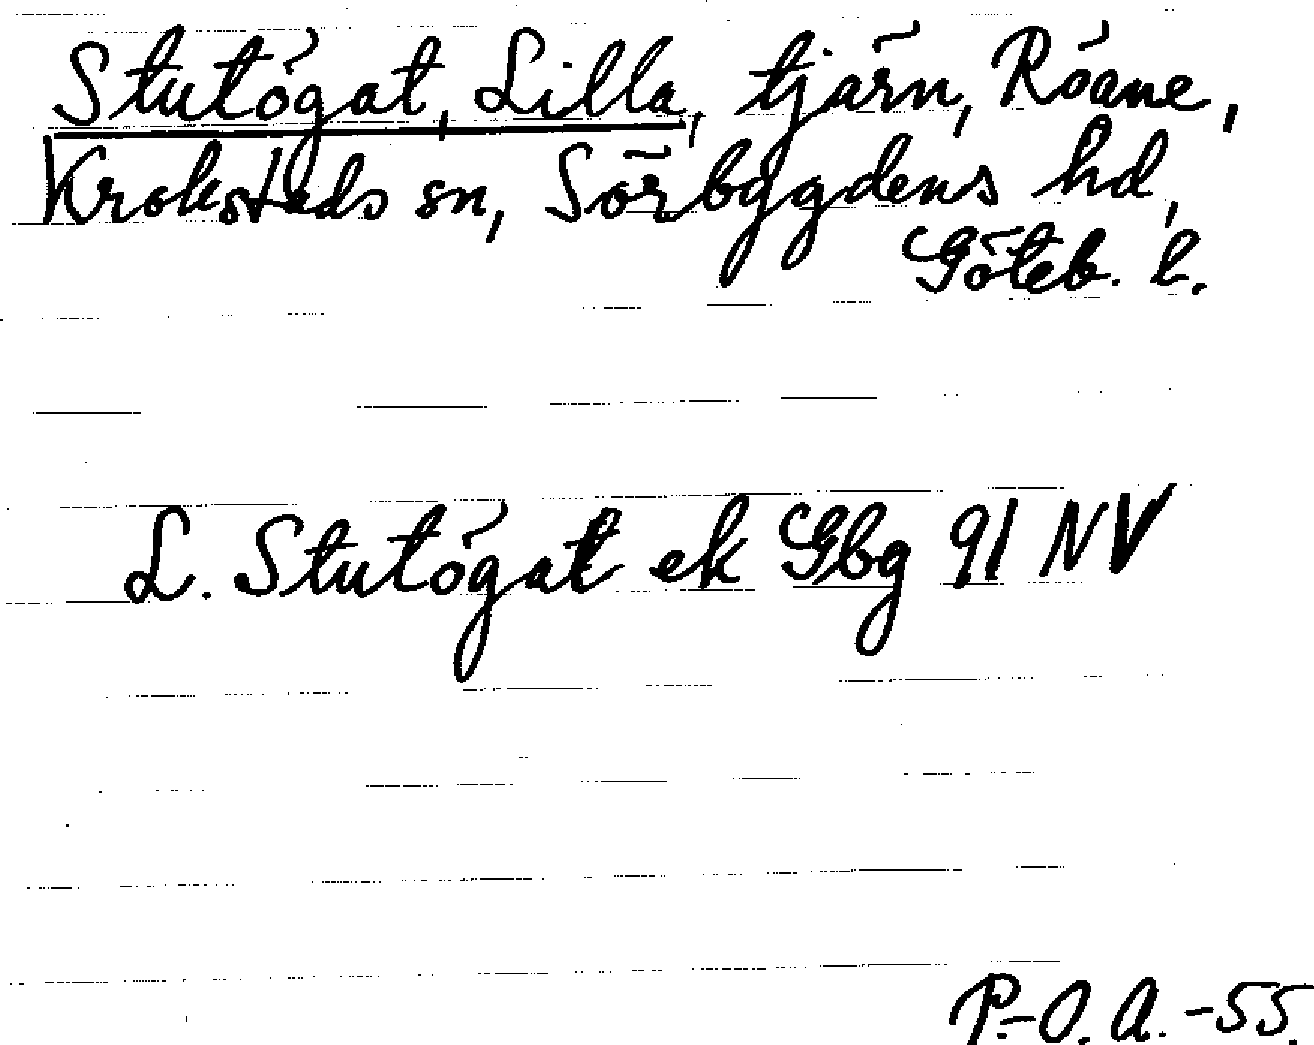 Stutögat, Lilla, tjärn, Röane,
Krokstads sn, Sörbygdens hd,
Göteb. l.
L. Stutögat ek Gbg 91 NV
P.-O. A. -55.